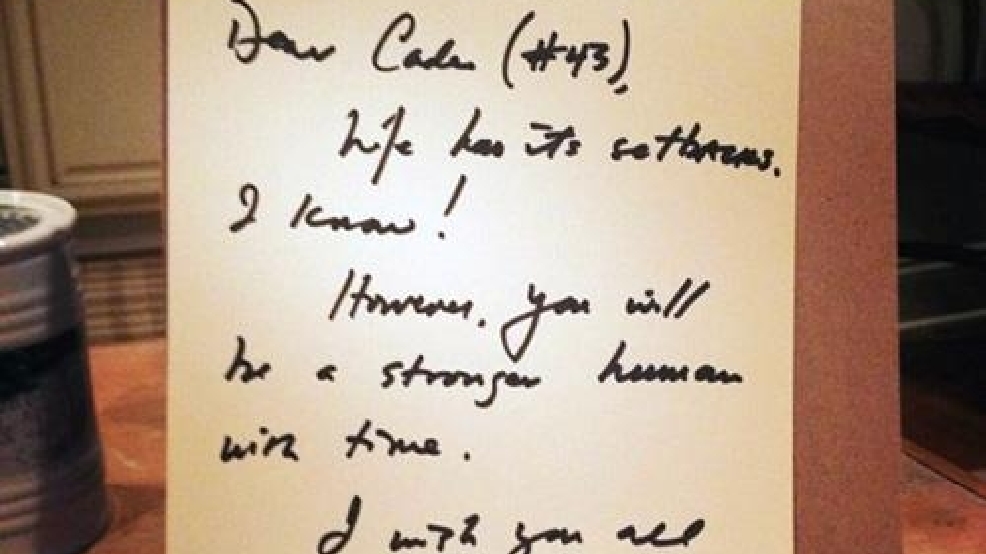 Dear Cade (#43),
Life has its setbacks.
I know!
However, you will
be a stronger human
with time.
I wish you all